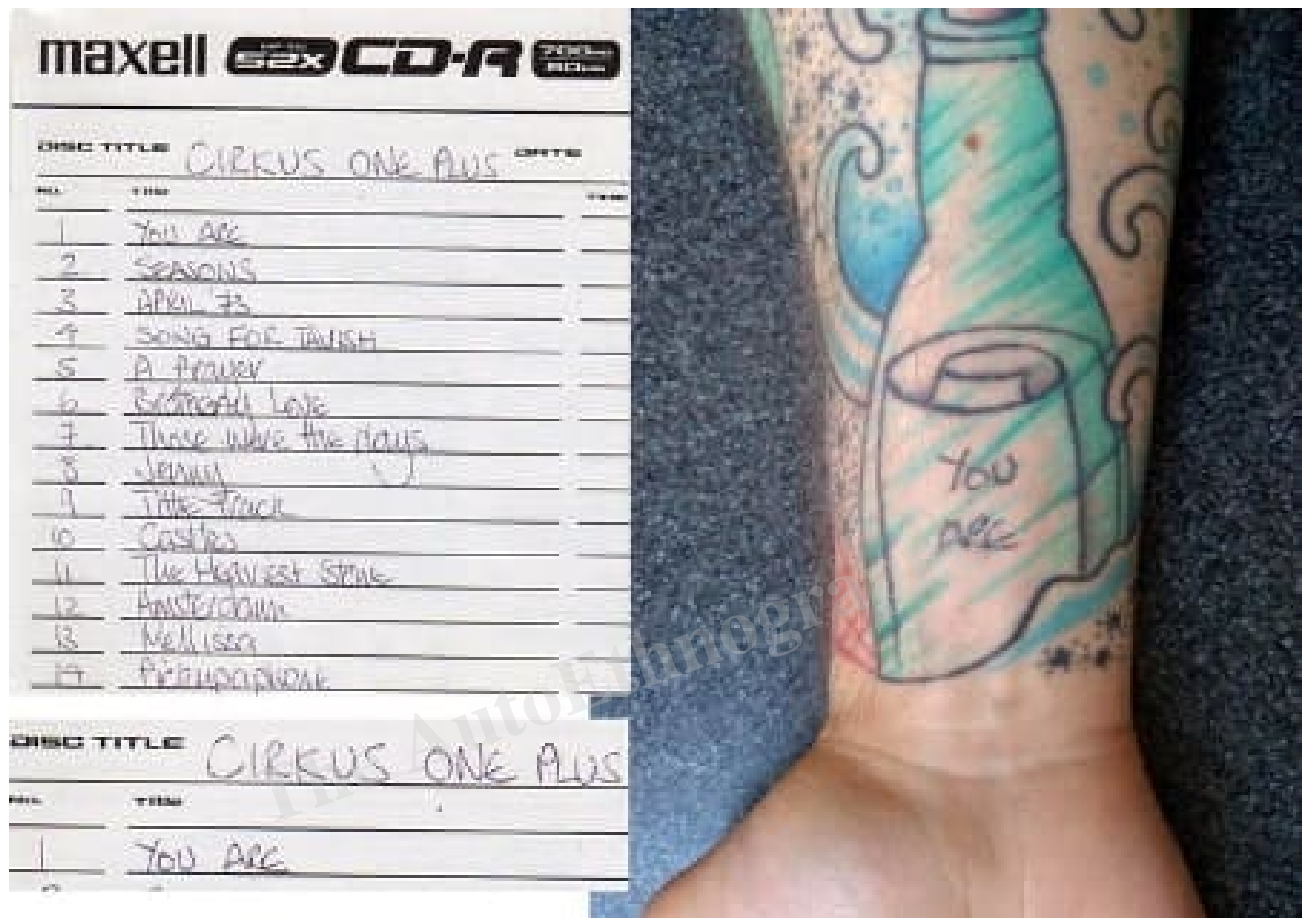 maxell UP TO 52x CD-R 700MB 80MIN
DISC TITLE CIRKUS ONE PLUS DATE
NO. TITLE TIME
1 YOU ARE
2 SEASONS
3 APRIL 73
4 SONG FOR TAVISH
5 A Prayer
6 Love
7 Those were the days
8 Jenny
9 Title Track
10 Castles
11 The Harvest
12 Amsterdam
13 Mellissa
14
DISC TITLE CIRKUS ONE PLUS
NO. TITLE
1 YOU ARE
YOU
ARE
AutoEthnogra